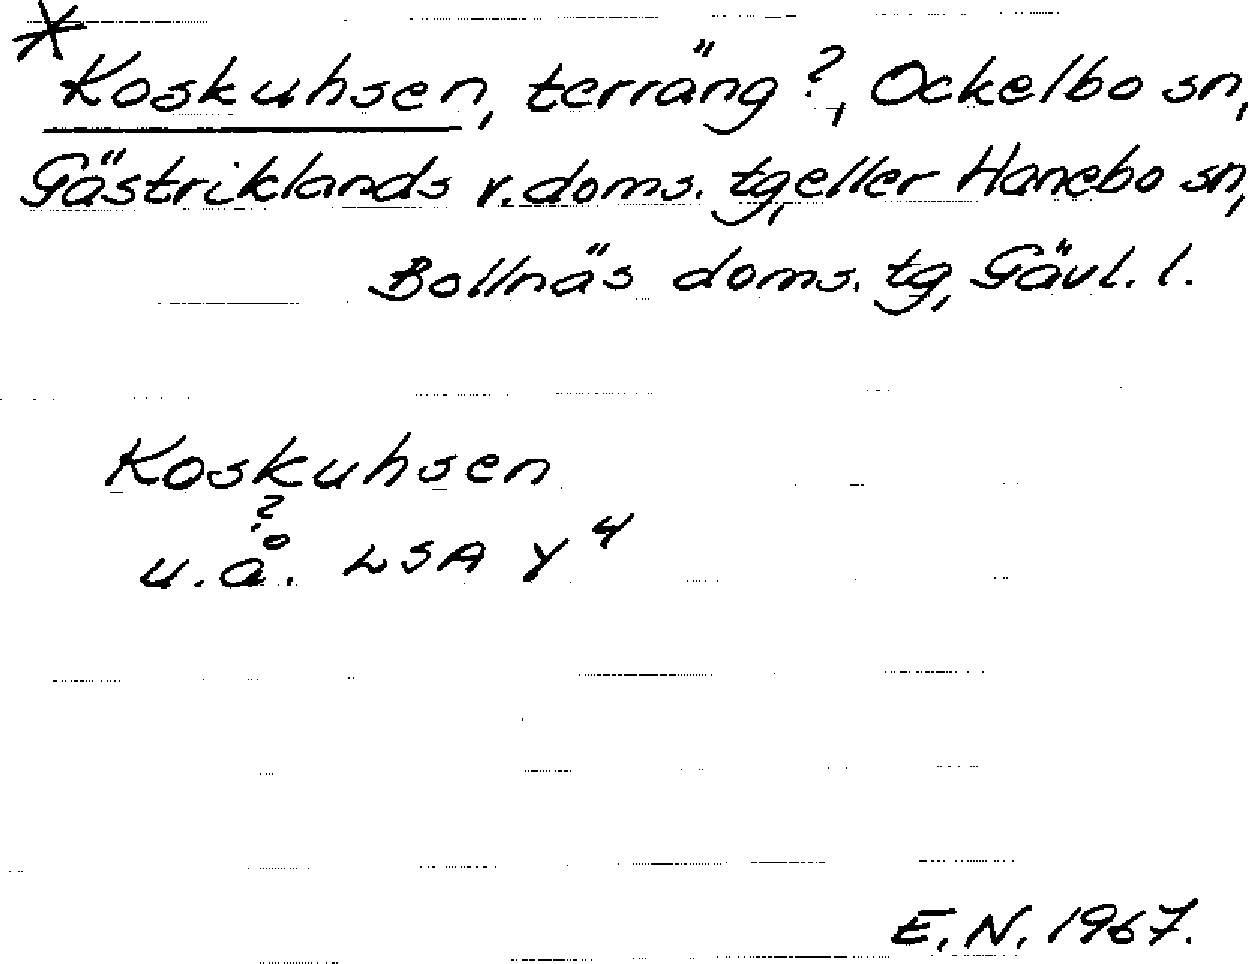 * Koskuhsen, terräng?, Ockelbo sn,
Gästriklands v. doms. tg, eller Hanebo sn,
Bollnäs doms. tg, Gävl. l.
Koskuhsen
?
u.å. LSA Y 4
E. N. 1967.